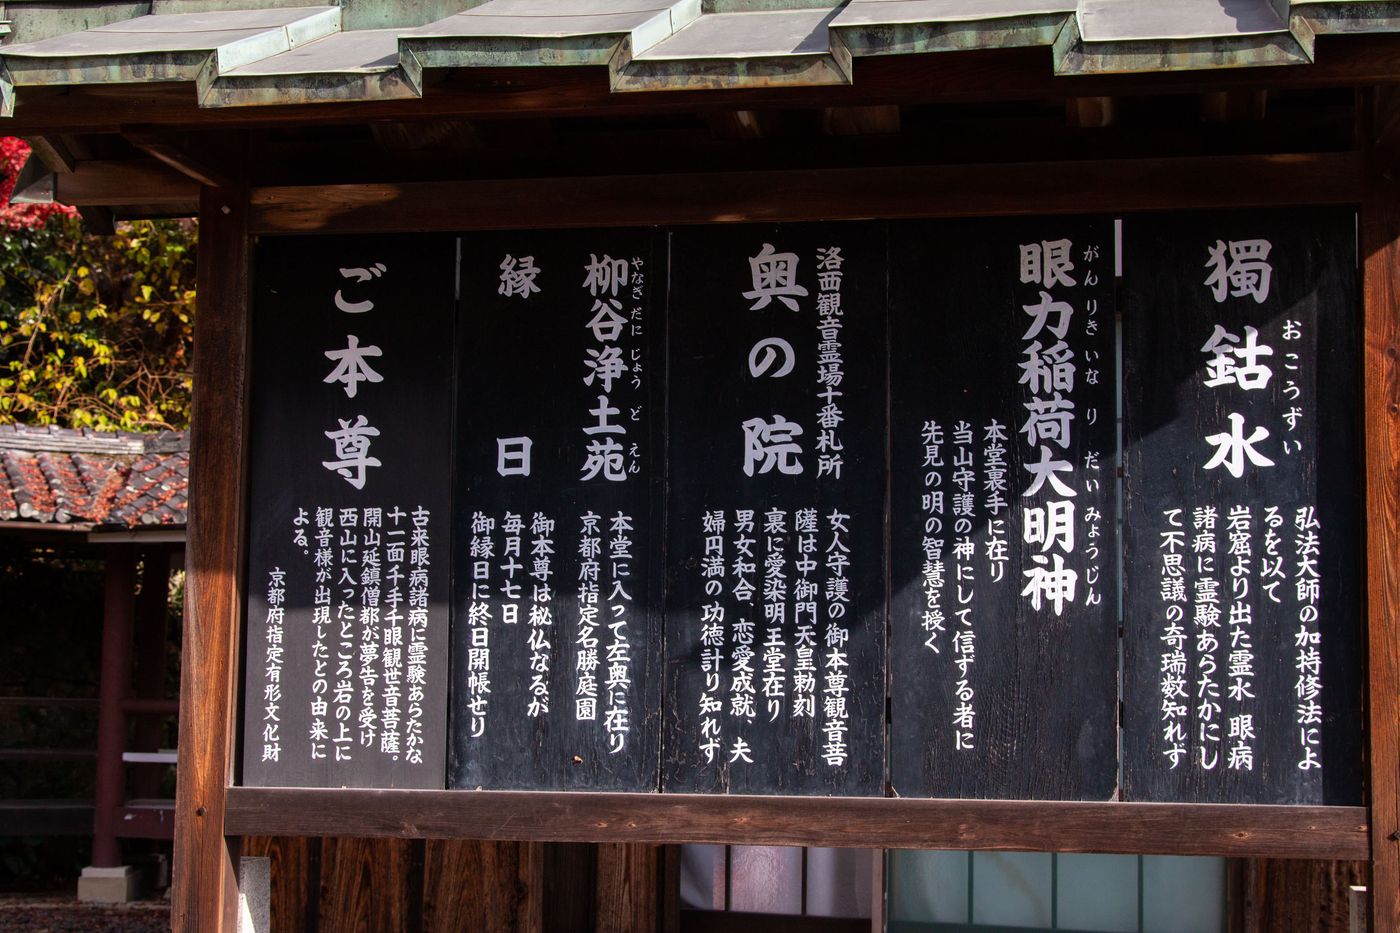 獨鈷水
おこうずい
弘法大師の加持修法によ
るを以て
岩窟より出た霊水 眼病
諸病に霊験あらたかにし
て不思議の奇瑞数知れず
がんりきいなりだいみょうじん
眼力稲荷大明神
本堂裏手に在り
当山守護の神にして信ずる者に
先見の明の智慧を授く
洛西観音霊場十番札所
奥の院
女人守護の御本尊観音菩
薩は中御門天皇勅刻
裏に愛染明王堂在り
男女和合、恋愛成就、夫
婦円満の功徳計り知れず
やなぎだにじょうどえん
柳谷浄土苑
本堂に入って左奥に在り
京都府指定名勝庭園
縁日
御本尊は秘仏なるが
毎月十七日
御縁日に終日開帳せり
ご本尊
古来眼病諸病に霊験あらたかな
十一面千手千眼観世音菩薩。
開山延鎮僧都が夢告を受け
西山に入ったところ岩の上に
観音様が出現したとの由来に
よる。
京都府指定有形文化財